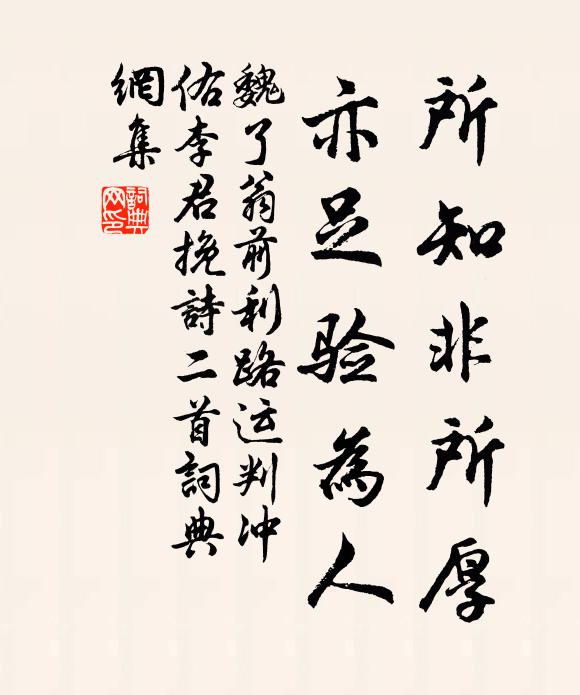 所知非所厚
亦足验為人
魏了翁前利路运判沖
佑李君挽詩二首詞典
網集
詞典
网印